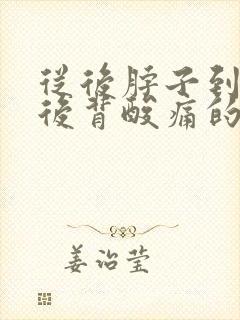 從後脖子到
後背酸痛的
姜治莹